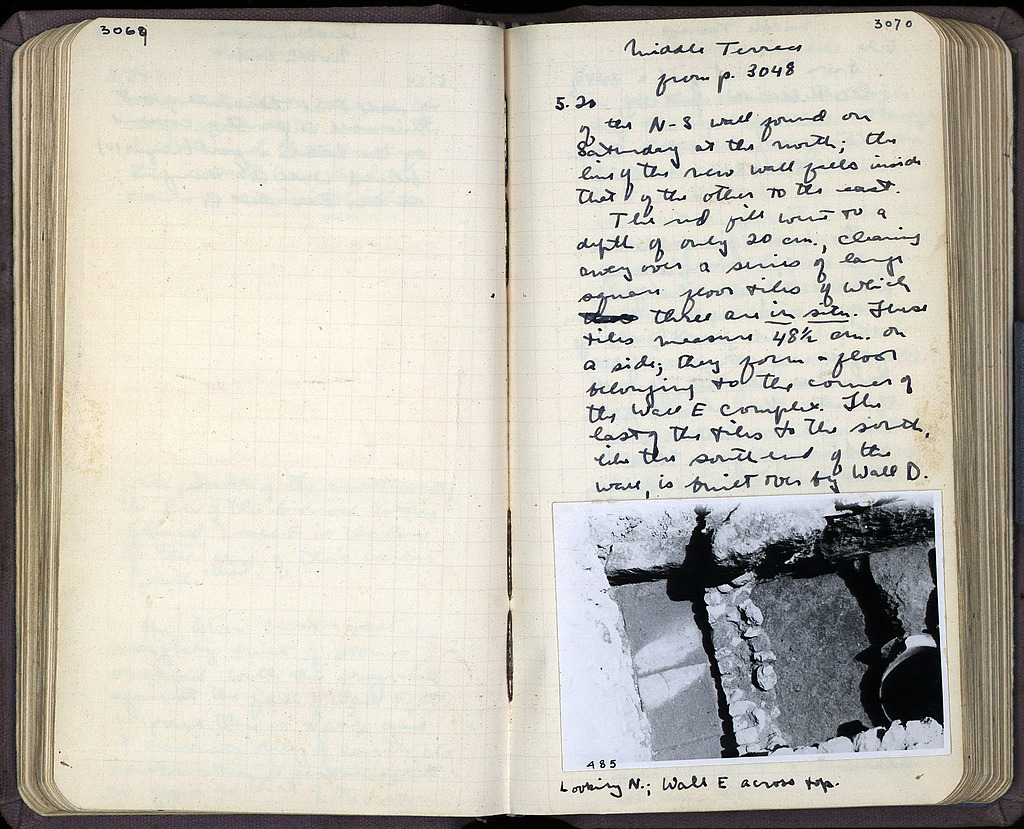 3069
3070
Middle Terrace
from p. 3048
5.20
of the N-S wall found on
Saturday at the north; the
line of the new wall falls inside
that of the other to the east.
The red fill went to a
depth of only 20 cm., clearing
away over a series of large
square floor tiles of which
three are in situ. These
tiles measure 48½ cm. on
a side; they form a floor
belonging to the corner of
the Wall E complex. The
last of the tiles to the south,
like the south end of the
wall, is built over by Wall D.
485
Looking N.; Wall E across top.